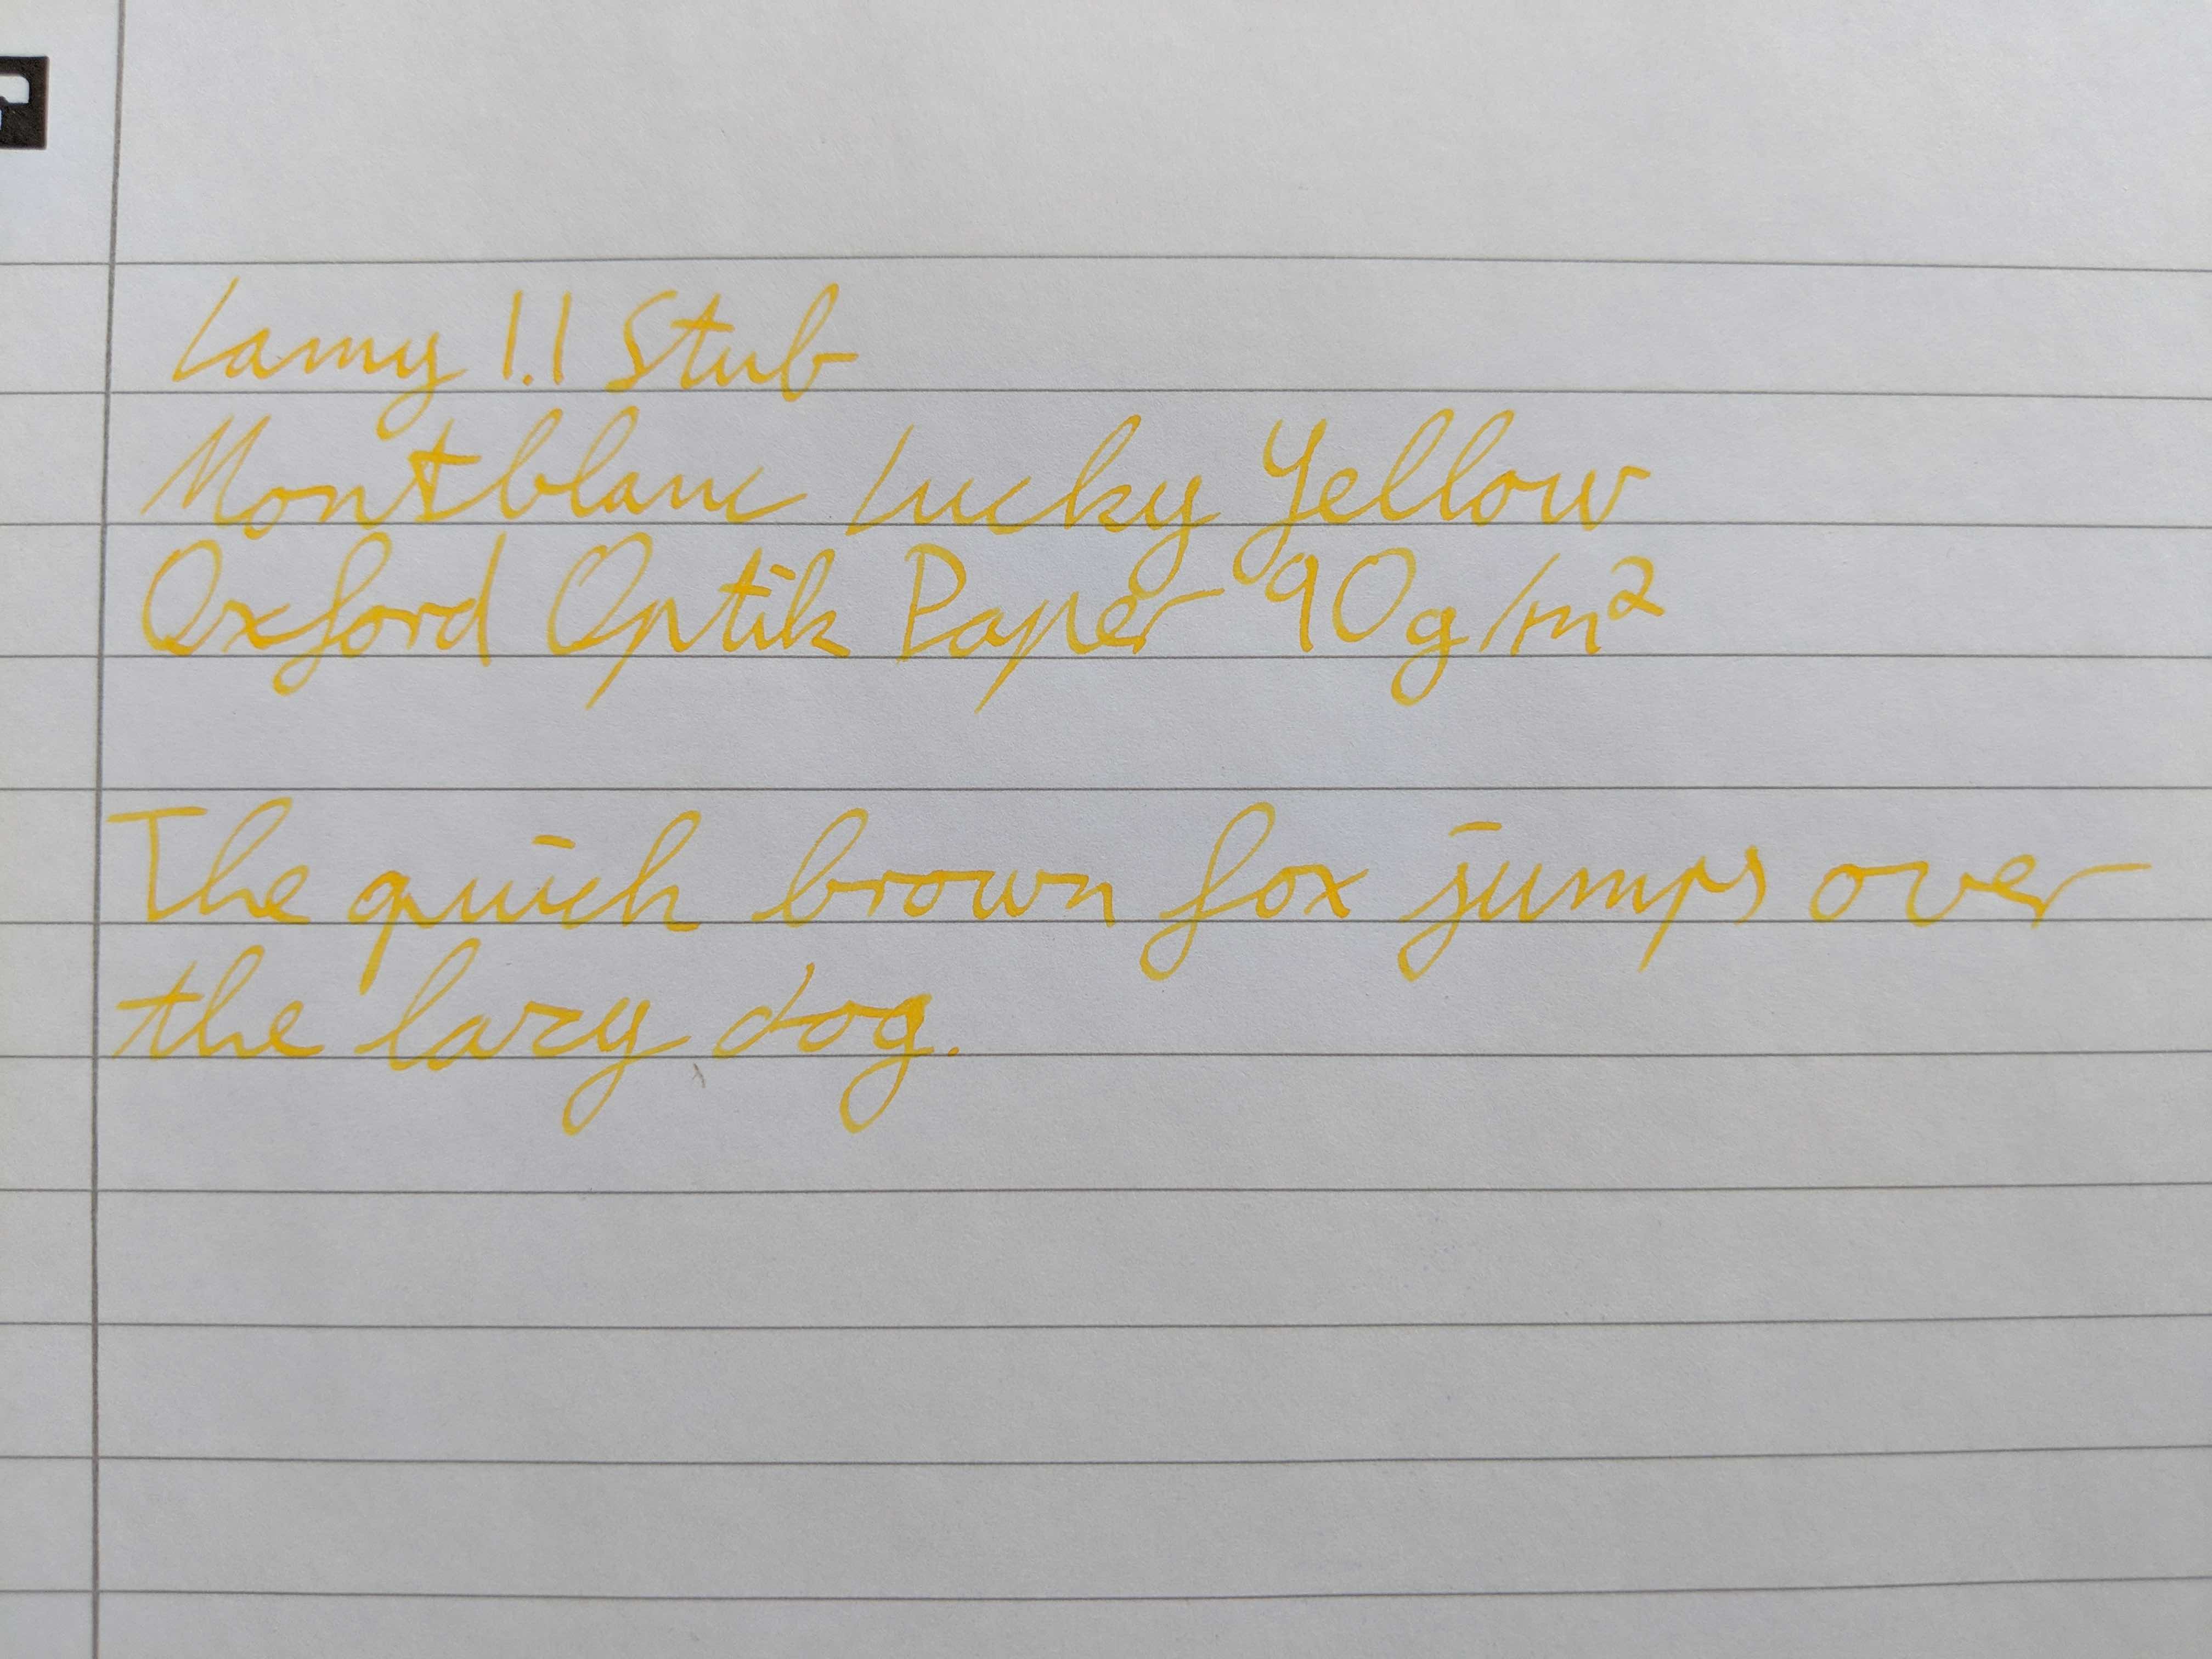 Lamy 1.1 Stub
Montblanc Lucky Yellow
Oxford Optik Paper 90g/m²
The quick brown fox jumps over
the lazy dog.